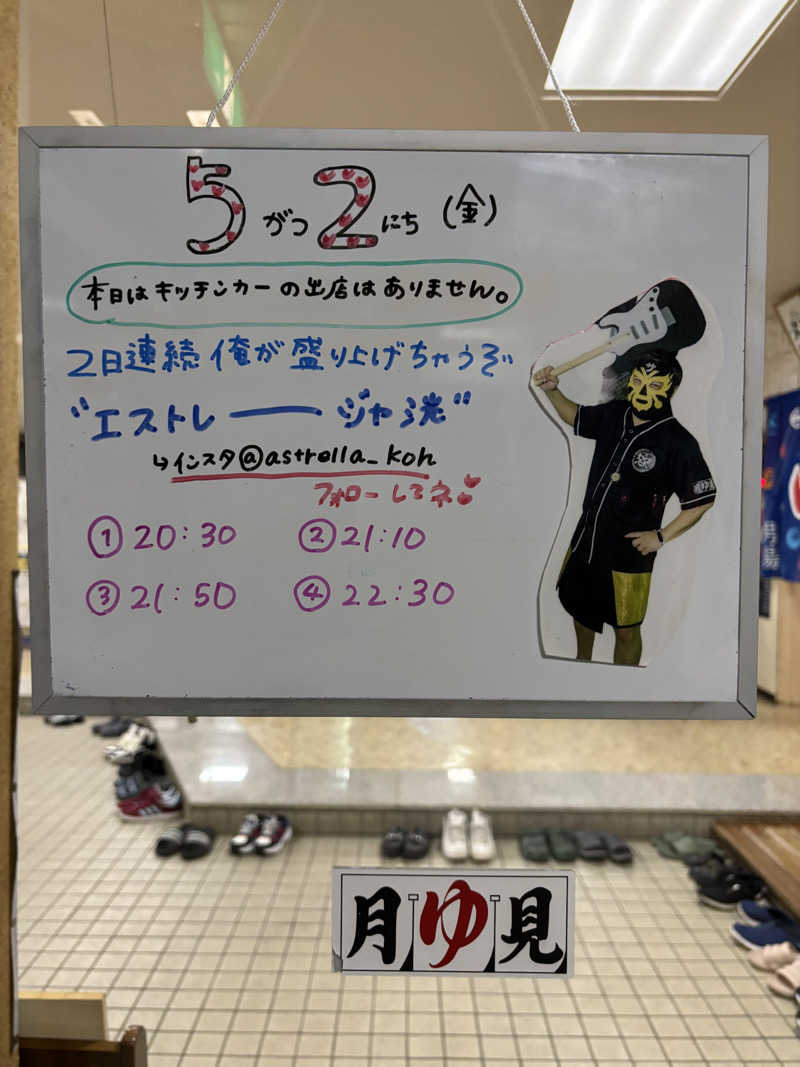 5がつ2にち（金）
本日はキッチンカーの出店はありません。
2日連続俺が盛り上げちゃうぞ
"エストレージャ洸"
↳インスタ@astrella_koh
フォローしてネ
① 20:30 ② 21:10
③ 21:50 ④ 22:30
月ゆ見